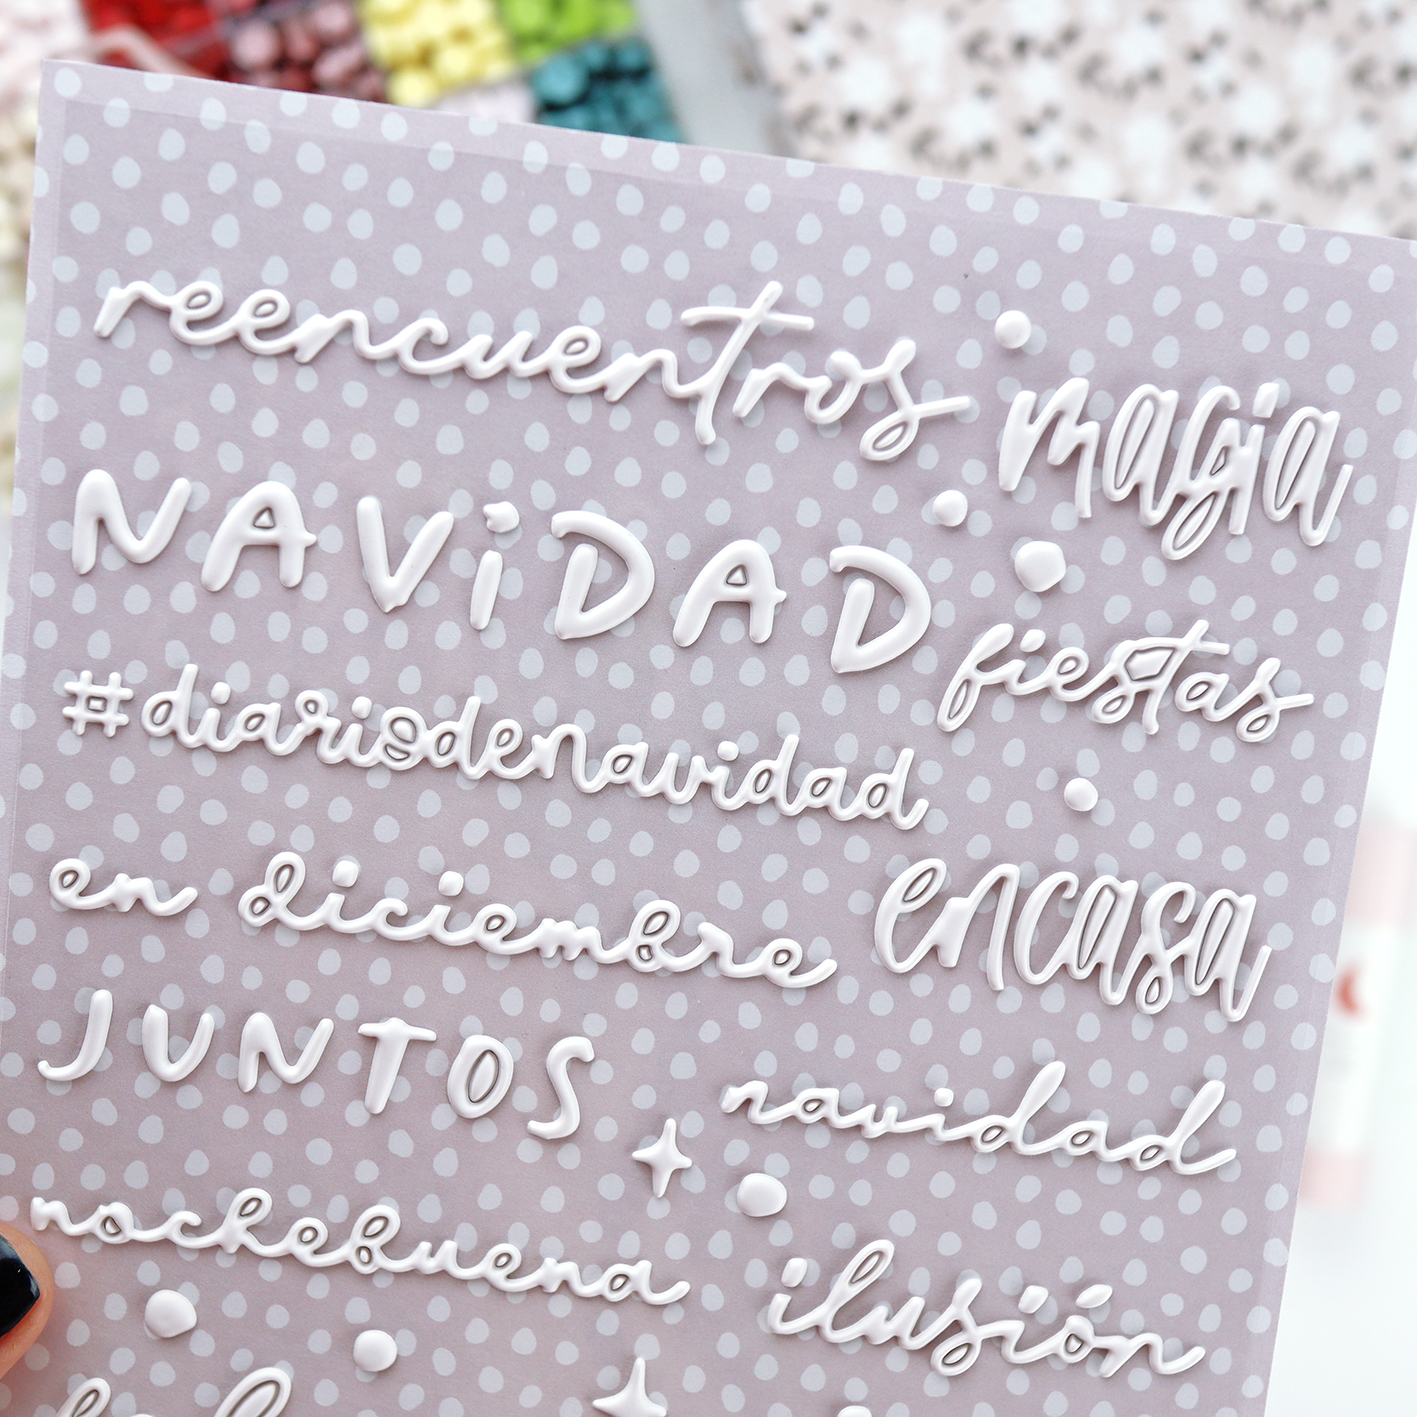 reencuentros
magia
NAViDAD
fiestas
#diariodenavidad
en diciembre
encasa
JUNTOS
navidad
nochebuena
ilusión